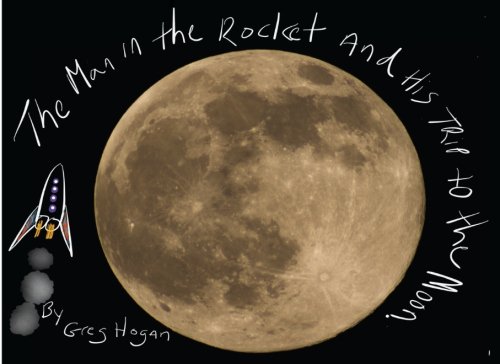 The Man in the Rocket And His Trip to the Moon
By
Greg Hogan